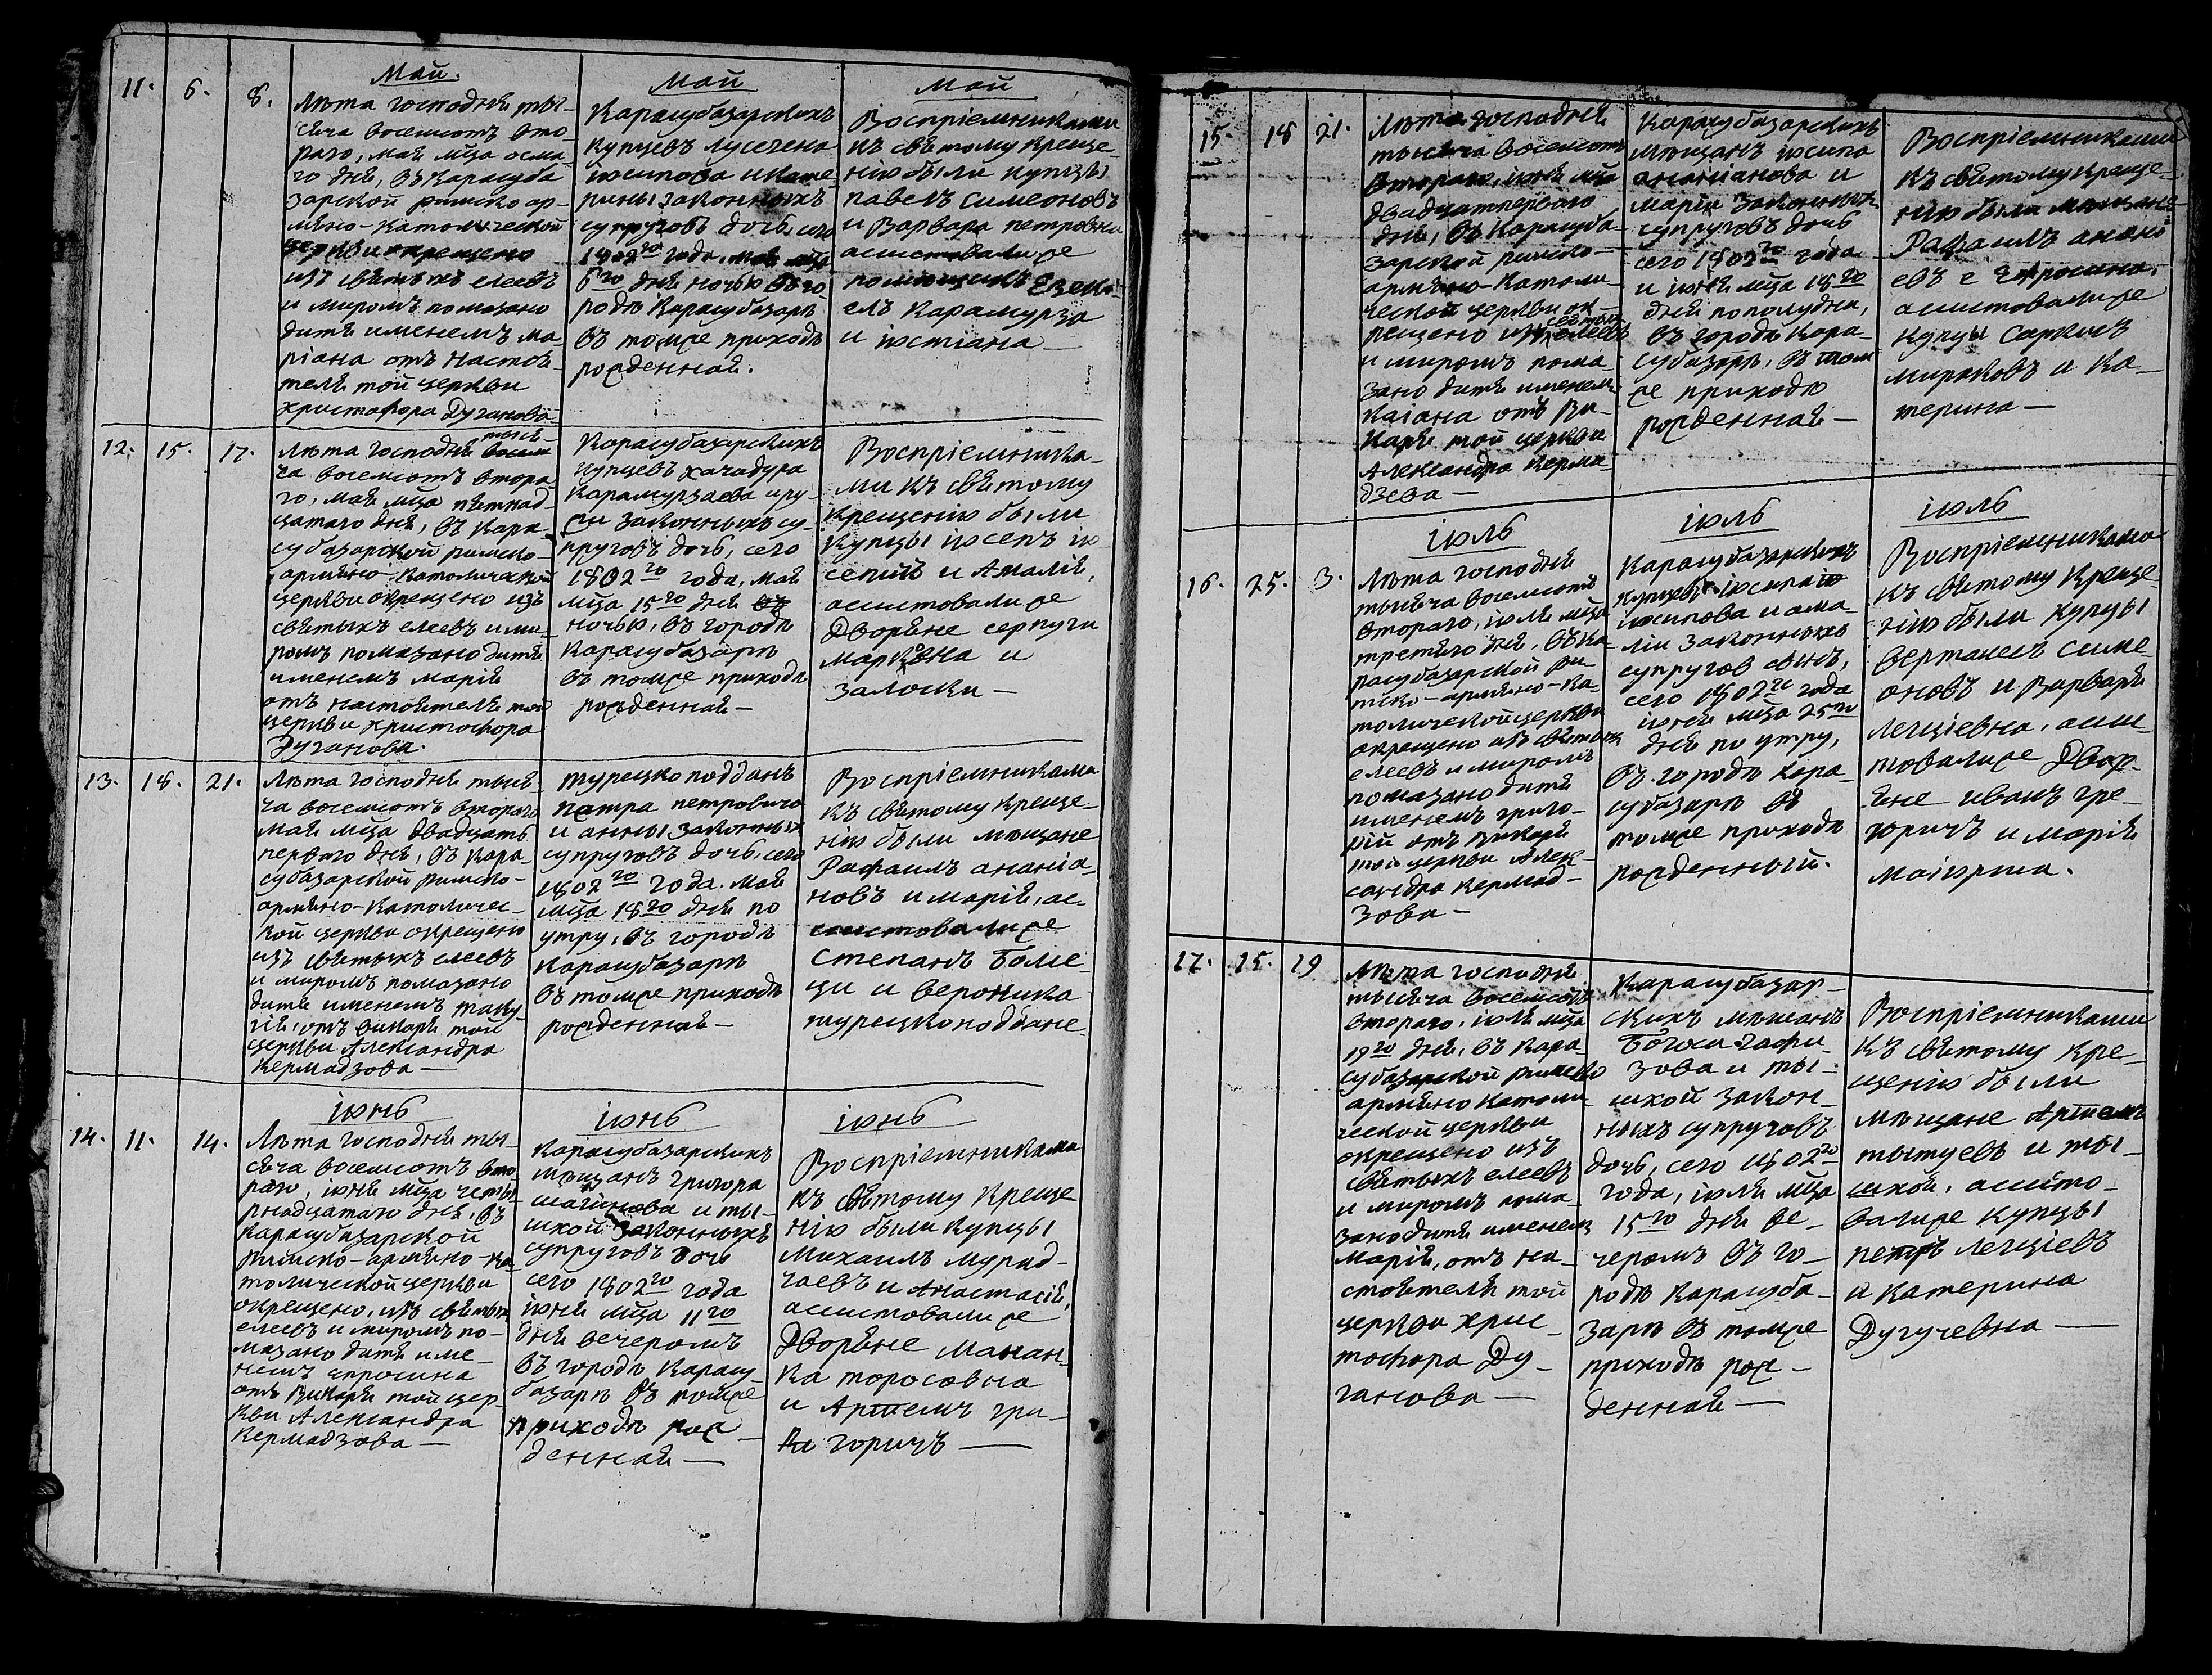 11. 6. 8.
Май.
Лѣта господня ты-
сяча восемсотъ вто
раго, мая мца осма-
го дня, въ Карасуба
зарской римско ар-
мяно-католической
церкви окрещено
изъ святыхъ елеевъ
и миромъ помазано
дитя именемъ ма-
ріана отъ настоя-
теля той церкви
христофора Дуганова-
Май
Карасубазарскихъ
купцевъ лусегена
іосипова и Кате
рины законныхъ
супруговъ дочь, сего
1802го года. мая мца
6го дня ночью въ го
родѣ Карасубазарѣ
въ томже приходѣ
рожденная.
Май
Воспріемниками
къ святому креще-
нію были купцы
павелъ симеоновъ
и Варвара петровна
асистовали же
помющикъ Езеки
елъ Карамурза
и іюстіана—
12. 15. 17.
Лѣта господня тыся-
ча восемсотъ втора-
го, мая мца пятнад-
цатаго дня, въ Кара
субазарской римско-
армяно-католической
церкви окрещено изъ
святыхъ елеевъ и ми-
ромъ помазано дитя
именемъ марія
отъ настоятеля той
церкви христофора
Дуганова.
Карасубазарскихъ
купцевъ хачадура
Карамурзаева и ру-
жи законныхъ су-
пруговъ дочь, сего
1802го года, мая
мца 15го дня
ночью, въ городѣ
Карасубазарѣ
въ томже приходѣ
рожденная—
Воспріемника-
ми къ святому
крещенію были
купцы іосепъ іо
сепій и Амалія,
асистовали же
Дворяне серпуги
марковна и
залоски—
13. 18. 21.
Лѣта господня тыся-
ча восемсотъ втораго
мая мца двадцать
перваго дня, въ Кара-
субазарской римско-
армяно-католичес-
кой церкви окрещено
изъ святыхъ елеевъ
и миромъ помазано
дитя именемъ таку-
гія, отъ викарія той
церкви Александра
Кермадзова—
турецкоподданъ
петра петровича
и анны законныхъ
супруговъ дочь, сего
1802го года. мая
мца 18го дня по
утру, въ городѣ
Карасубазарѣ
въ томже приходѣ
рожденная—
Воспріемниками
къ святому креще-
нію были мѣщане
Рафаилъ ананіа-
новъ и марія, ас-
систовали же
степанъ Боме-
ци и вероника
турецкоподдане-
14. 11. 14.
іюнь
Лѣта господня ты-
сяча восемсотъ вто
раго, іюня мца четы
рнадцатаго дня, въ
Карасубазарской
Римско-армяно-ка-
толической церкви
окрещено, изъ святыхъ
елеевъ и миромъ по-
мазано дитя име-
немъ епросина
отъ Викарія той цер
кви Александра
Кермадзова—
іюнь
Карасубазарскихъ
мѣщанъ григора
шагинова и ты-
шхой законныхъ
супруговъ дочь
сего 1802го года
іюня мца 11го
дня вечеромъ
въ городѣ Карасу-
базарѣ въ томже
приходѣ рож—
денная—
іюнь
Воспріемниками
къ святому креще
нію были купцы
Михаилъ мурад-
чаевъ и Анастасія,
асистовали же
Дворяне манан-
ка торосовна
и Артемъ гри-
горичъ—
15. 18 21.
Лѣта господня
тысяча восемсотъ
втораго, іюня мца
двадцатперваго
дня, въ Карасуба-
зарской римско-
армяно-католи-
ческой церкви ок-
рещено изъ святыхъ елеевъ
и миромъ пома
зано дитя именемъ
каіана отъ Ви-
карія той церкви
Александра Керма
дзева—
Карасубазарскихъ
мѣщанъ іосипа
ананіанова и
маріи законныхъ
супруговъ дочь
сего 1802го года
и іюня мца 18го
дня пополудни,
въ городѣ Кара-
субазарѣ, въ том
же приходѣ
рожденная—
Воспріемниками
къ святому креще-
нію были мѣщане
Рафаилъ анані
евъ е Епросина,
асистовали же
купцы саркисъ
мироковъ и Ка-
терина—
16. 25. 3.
іюль
Лѣта господня
тысяча восемсотъ
втораго, іюля мца
третяго дня, въ Ка-
расубазарской ри
мско-армяно-ка-
толической церкви
окрещено изъ святыхъ
елеевъ и миромъ
помазано дитя
именемъ григо-
рій отъ Викарія
той церкви Алек-
сандра Кермад-
зова—
іюль
Карасубазарскихъ
купцевъ іосипа
іосипова и ама-
ліи законныхъ
супругов сынъ,
сего 1802го года
іюня мца 25го
дня по утру,
въ городѣ Кара-
субазарѣ въ
томже приходѣ
рожденный.
іюль
Воспріемниками
къ святому креще-
нію были купцы
вертанесъ симе-
оновъ и Варвара
легціевна, асис-
товали же Двор-
яне иванъ гре-
горичъ и марія
маіорша.
17. 15. 19
Лѣта господня
тысяча восемсотъ
втораго, іюля мца
19го дня, въ Кара-
субазарской римско
армяно католи
ческой церкви
окрещено изъ
святыхъ елеевъ
и миромъ пома
зано дитя именемъ
Марія, отъ на-
стоятеля той
церкви Хрис-
тофора Ду-
ганова—
Карасубазар-
скихъ мѣщанъ
Богоса гафи-
зова и ты-
шхой закон-
ныхъ супруговъ
дочь, сего 1802го
года, іюля мца
15го дня ве-
черомъ въ го-
родѣ Карасуба-
зарѣ въ томже
приходѣ рож-
денная—
Воспріемниками
къ святому кре-
щенію были
мѣщане Артемъ
тытуевъ и ты-
шхой, асисто-
вали же купцы
петръ легціевъ
и Катерина
Дугучевна—